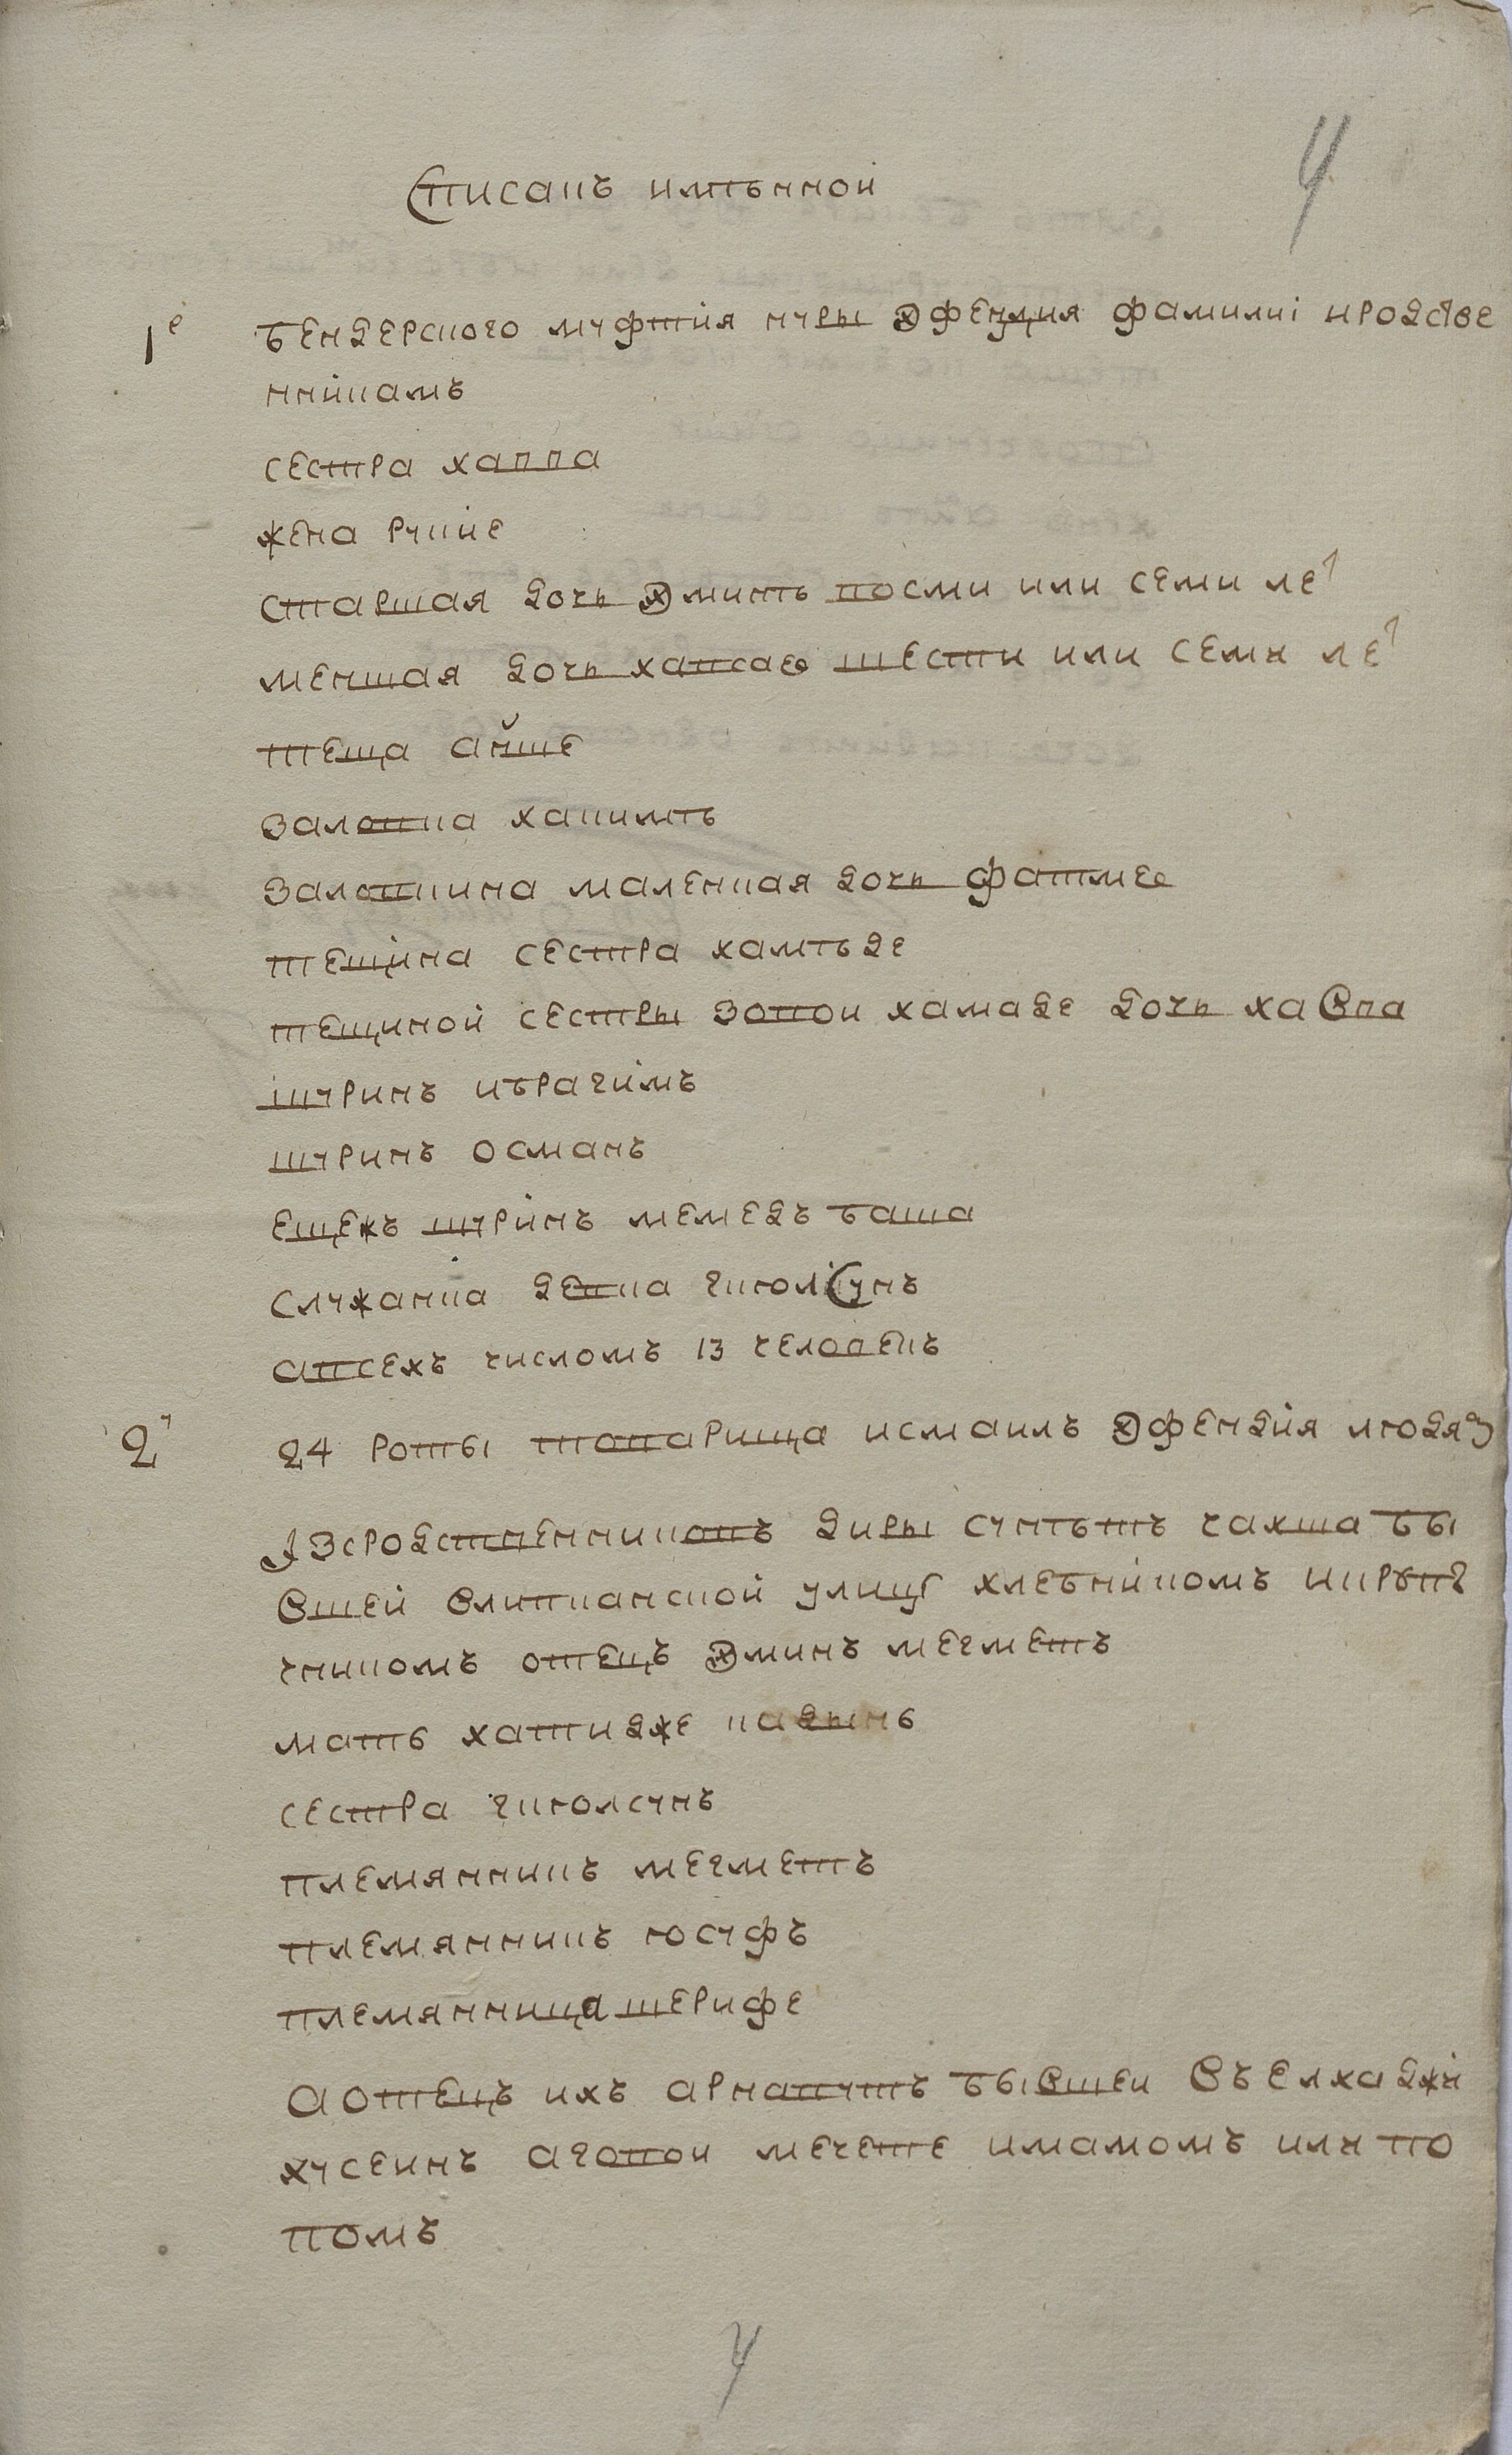 4
Списакъ имѣнной
1е бендерского муфтия нуры эфендия фамилиі иродстве
нникамъ
сестра хавва
жена рукие
старшая дочь эминѣ восми или семи лет
меншая дочь хавсае шести или семи лет
теща айше
заловка хакимѣ
заловкина маленкая дочь фатмее
тещина сестра хамѣде
тещиной сестры зовои хамаде дочь хавва
шуринъ ибрагимъ
шуринъ османъ
ещежъ шуринъ мемедъ баша
служанка девка гиюлсунъ
авсехъ числомъ 13 человекъ
2й 24 роты товарища исмаилъ эфендия людям
Ізсродственниковъ диры сунѣтъ чахша бы
вшей влипканской улице хлебникомъ икрен
чникомъ отецъ эминъ мегметъ
мать хатидже кадынь
сестра гиюлсунъ
племянникъ мегметъ
племянникъ юсуфъ
племянница шерифе
аотецъ ихъ арнавутъ бывшеи въелхаджи
хусеинъ аговои мечете имамомъ или по
помъ
4